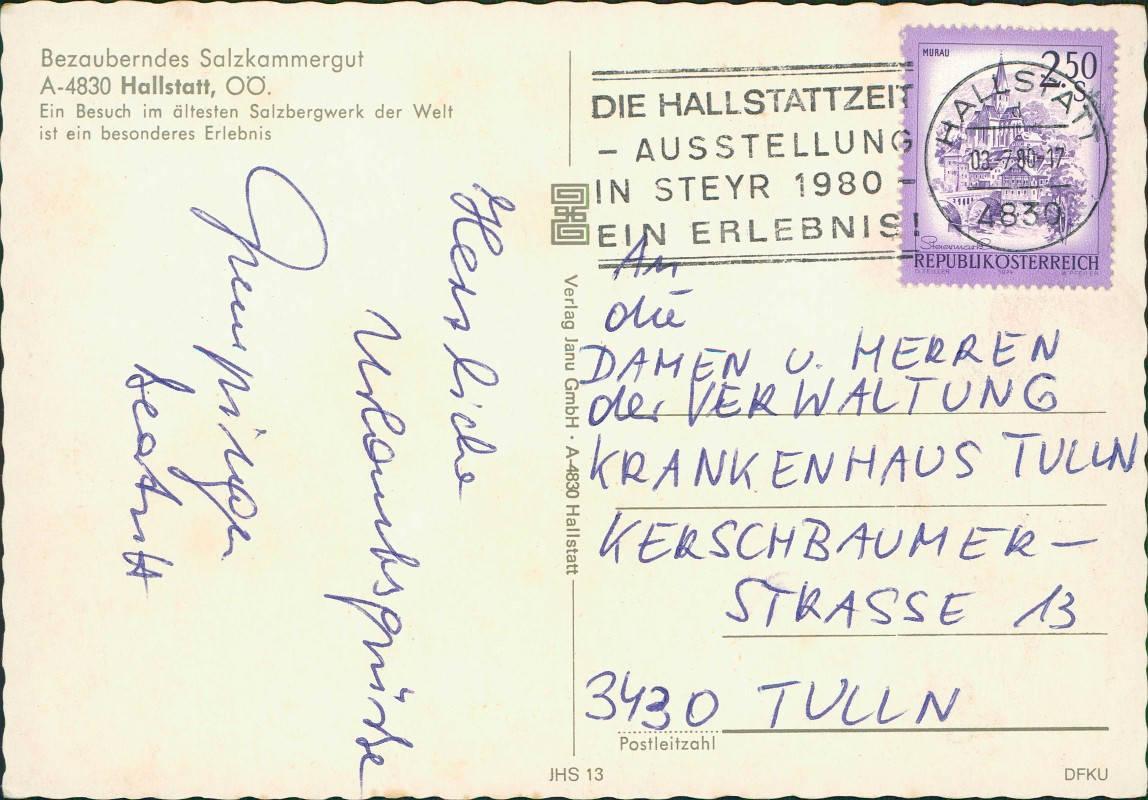 Bezauberndes Salzkammergut
A-4830 Hallstatt, OÖ.
Ein Besuch im ältesten Salzbergwerk der Welt
ist ein besonderes Erlebnis
Herzliche
Urlaubsgrüße
DIE HALLSTATTZEIT
- AUSSTELLUNG
IN STEYR 1980 -
EIN ERLEBNIS!
MURAU
2.50
S
HALLSTATT
03-7.80-17
4830
Steiermark
REPUBLIK ÖSTERREICH
O. ZEILLER 1974 W. PFEILER
An
die
DAMEN U. HERREN
der VERWALTUNG
KRANKENHAUS TULLN
KERSCHBAUMER-
STRASSE 13
3430 TULLN
Postleitzahl
Verlag Janu GmbH · A-4830 Hallstatt
JHS 13
DFKU